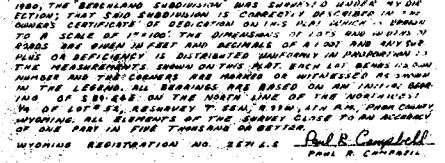 1980, THE "BEACHLAND SUBDIVISION" WAS SURVEYED UNDER MY DI-
RECTION; THAT SAID SUBDIVISION IS CORRECTLY DESCRIBED IN THE
OWNER'S CERTIFICATE OF DEDICATION ON THIS PLAT WHICH IS DRAWN
TO A SCALE OF 1"=100'. THE DIMENSIONS OF LOTS AND WIDTHS OF
ROADS ARE GIVEN IN FEET AND DECIMALS OF A FOOT AND ANY SUR-
PLUS OR DEFICIENCY IS DISTRIBUTED UNIFORMLY IN PROPORTION TO
THE MEASUREMENTS SHOWN ON THIS PLAT. EACH LOT BEARS ITS OWN
NUMBER AND THE CORNERS ARE MARKED OR WITNESSED AS SHOWN
IN THE LEGEND. ALL BEARINGS ARE BASED ON AN INITIAL BEAR-
ING OF ON THE NORTH LINE OF THE NORTHWEST
OF LOT 54, RESURVEY T. 56N., 6TH P.M., PARK COUNTY,
WYOMING. ALL ELEMENTS OF THE SURVEY CLOSE TO AN ACCURACY
OF ONE PART IN FIVE THOUSAND OR BETTER.
WYOMING REGISTRATION NO. L.S. Paul R. Campbell
PAUL R. CAMPBELL